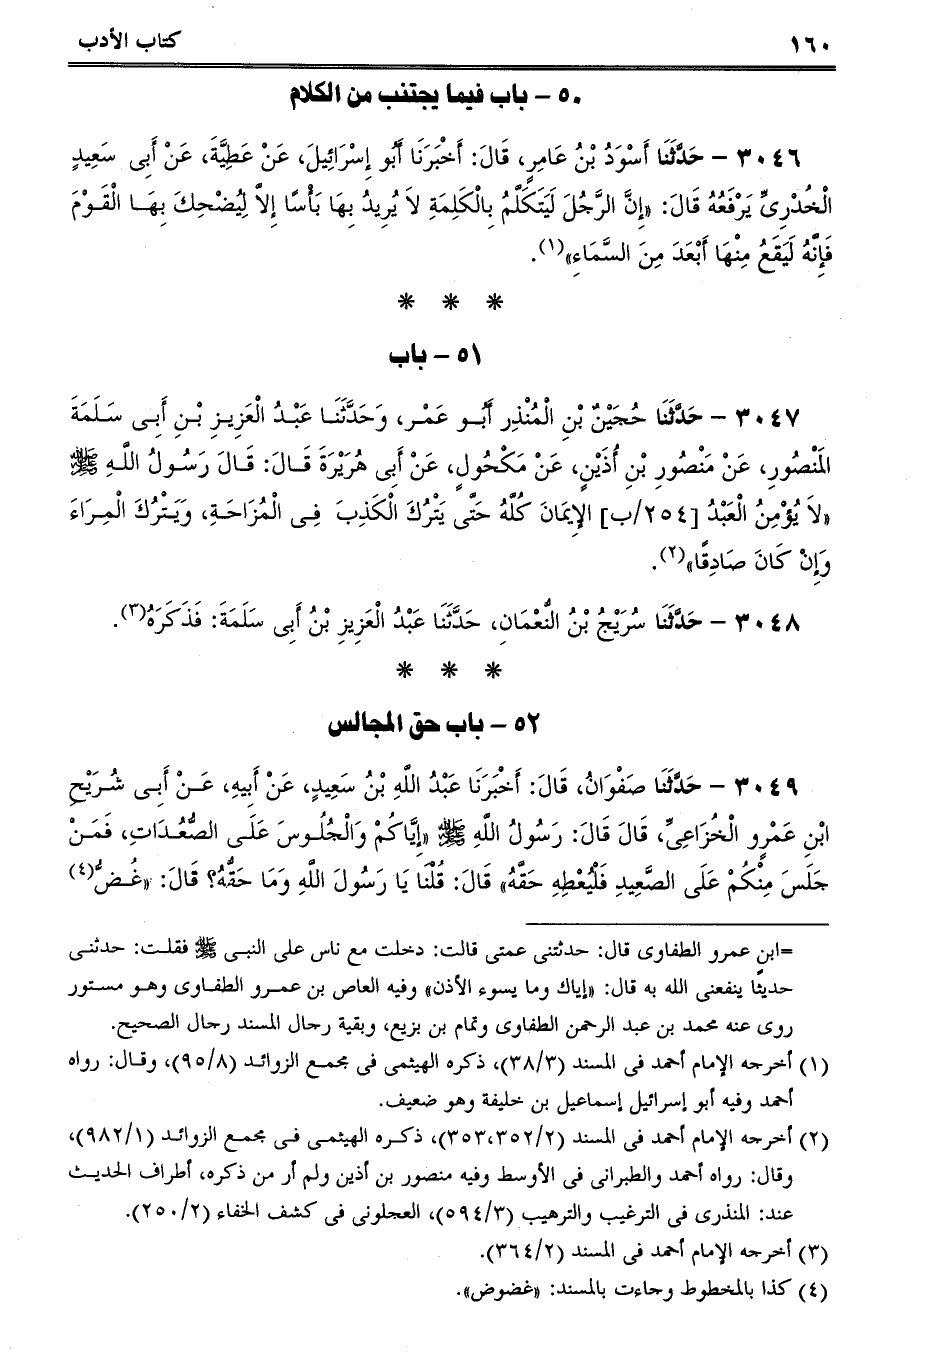 ١٦٠ كتاب الأدب
٥٠ - باب فيما يجتنب من الكلام
٣٠٤٦ - حَدَّثَنَا أَسْوَدُ بْنُ عَامِرٍ، قَالَ: أَخْبَرَنَا أَبُو إِسْرَائِيلَ، عَنْ عَطِيَّةَ، عَنْ أَبِى سَعِيدٍ
الْخُدْرِىِّ يَرْفَعُهُ قَالَ: «إِنَّ الرَّجُلَ لَيَتَكَلَّمُ بِالْكَلِمَةِ لاَ يُرِيدُ بِهَا بَأْسًا إِلاَّ لِيُضْحِكَ بِهَا الْقَوْمَ
فَإِنَّهُ لَيَقَعُ مِنْهَا أَبْعَدَ مِنَ السَّمَاءِ»(١).
* * *
٥١ - باب
٣٠٤٧ - حَدَّثَنَا حُجَيْنٌ بْنِ الْمُنْذِرِ أَبُو عَمْرٍ، وَحَدَّثَنَا عَبْدُ الْعَزِيزِ بْنِ أَبِى سَلَمَةَ
الْمَنْصُورِ، عَنْ مَنْصُورِ بْنِ أُذَيْنٍ، عَنْ مَكْحُولٍ، عَنْ أَبِى هُرَيْرَةَ قَالَ: قَالَ رَسُولُ اللَّهِ ﷺ
«لاَ يُؤْمِنُ الْعَبْدُ [٢٥٤/ب] الإِيمَانَ كُلَّهُ حَتَّى يَتْرُكَ الْكَذِبَ فِى الْمُزَاحَةِ، وَيَتْرُكَ الْمِرَاءَ
وَإِنْ كَانَ صَادِقًا»(٢).
٣٠٤٨ - حَدَّثَنَا سُرَيْجُ بْنُ النُّعْمَانِ، حَدَّثَنَا عَبْدُ الْعَزِيزِ بْنُ أَبِى سَلَمَةَ: فَذَكَرَهُ(٣).
* * *
٥٢ - باب حق المجالس
٣٠٤٩ - حَدَّثَنَا صَفْوَانُ، قَالَ: أَخْبَرَنَا عَبْدُ اللَّهِ بْنُ سَعِيدٍ، عَنْ أَبِيهِ، عَنْ أَبِى شُرَيْحِ
ابْنِ عَمْرٍو الْخُزَاعِىِّ، قَالَ قَالَ: رَسُولُ اللَّهِ ﷺ «إِيَّاكُمْ وَالْجُلُوسَ عَلَى الصُّعُدَاتِ، فَمَنْ
جَلَسَ مِنْكُمْ عَلَى الصَّعِيدِ فَلْيُعْطِهِ حَقَّهُ» قَالَ: قُلْنَا يَا رَسُولَ اللَّهِ وَمَا حَقُّهُ؟ قَالَ: «غُضُ(٤)
=ابن عمرو الطفاوى قال: حدثتنى عمتى قالت: دخلت مع ناس على النبى ﷺ فقلت: حدثنى
حديثًا ينفعنى الله به قال: «إياك وما يسوء الأذن» وفيه العاص بن عمرو الطفاوى وهو مستور
روى عنه محمد بن عبد الرحمن الطفاوى وتمام بن بزيع، وبقية رجال المسند رجال الصحيح.
(١) أخرجه الإمام أحمد فى المسند (٣٨/٣)، ذكره الهيثمى فى مجمع الزوائد (٩٥/٨)، وقال: رواه
أحمد وفيه أبو إسرائيل إسماعيل بن خليفة وهو ضعيف.
(٢) أخرجه الإمام أحمد فى المسند (٣٥٣،٣٥٢/٢)، ذكره الهيثمى فى مجمع الزوائد (٩٨٢/١)،
وقال: رواه أحمد والطبرانى فى الأوسط وفيه منصور بن أذين ولم أر من ذكره، أطراف الحديث
عند: المنذرى فى الترغيب والترهيب (٥٩٤/٣)، العجلونى فى كشف الخفاء (٢٥٠/٢).
(٣) أخرجه الإمام أحمد فى المسند (٣٦٤/٢).
(٤) كذا بالمخطوط وجاءت بالمسند: «غضوض».